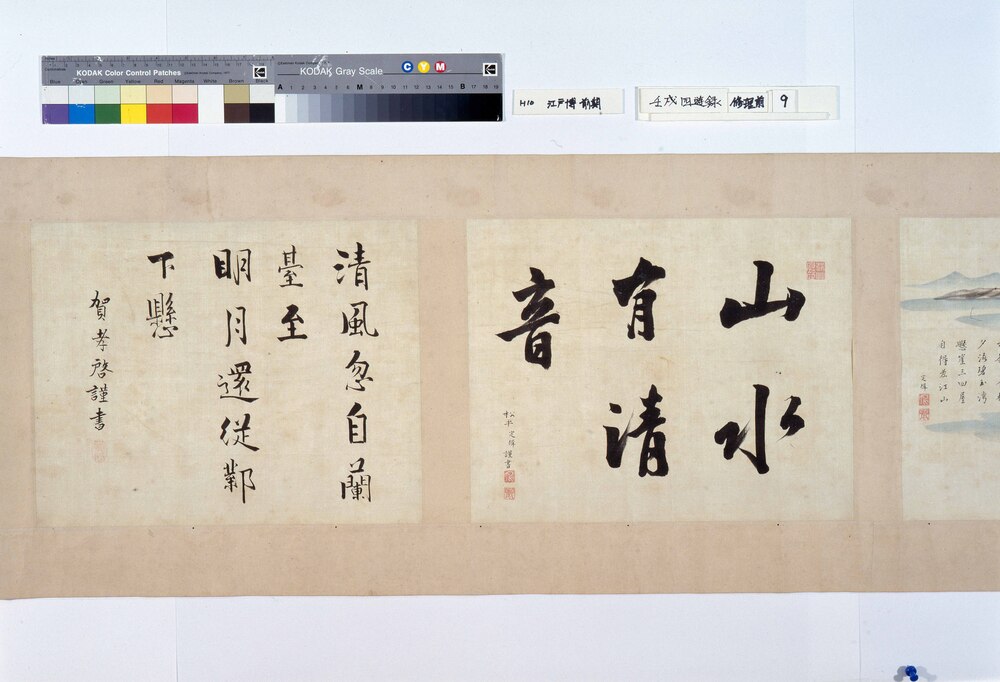 KODAK Color Control Patches
Blue Cyan Green Yellow Red Magenta White Brown Black
KODAK Gray Scale
C Y M
A 1 2 3 4 5 6 M 8 9 10 11 12 13 14 15 B 17 18 19
H10 江戸博
壬戌四遊録 修理前 9
山水
有清
音
松平定
謹書
清風忽自蘭
臺至
明月還従鄴
下懸
賀孝啓謹書
自得
江山